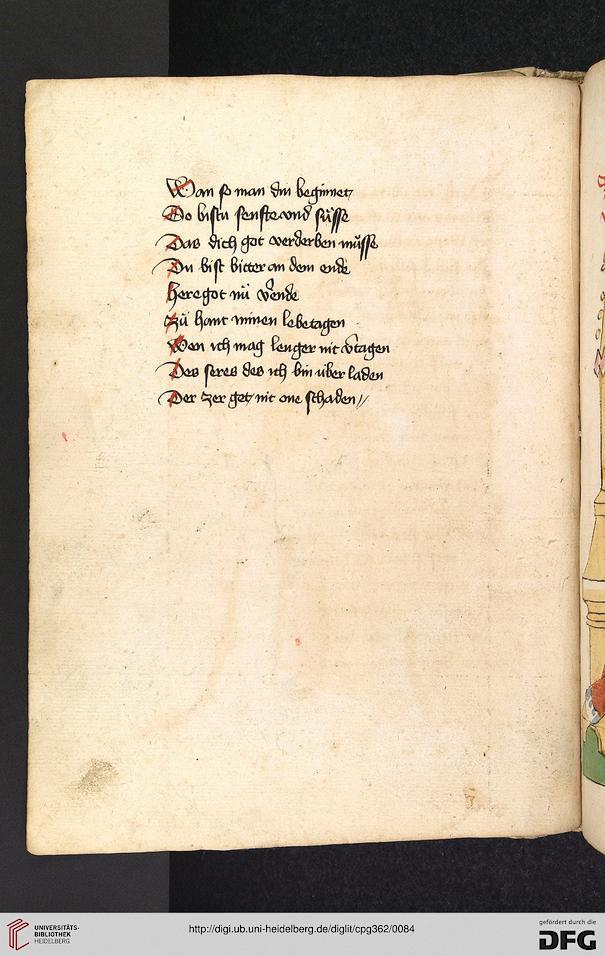 Wan so man din beginnet
So bistu senfte vnd süsse
Das dich got verderben müsse
Du bist bitter an dem ende
here got nü v̄ende
zü hant minen lebetagen
Wen ich mag lenger nit v̄tagen
Des seres des ich bin über laden
Der zer get nit one schaden //
UNIVERSITÄTS-
BIBLIOTHEK
HEIDELBERG
http://digi.ub.uni-heidelberg.de/diglit/cpg362/0084
gefördert durch die
DFG